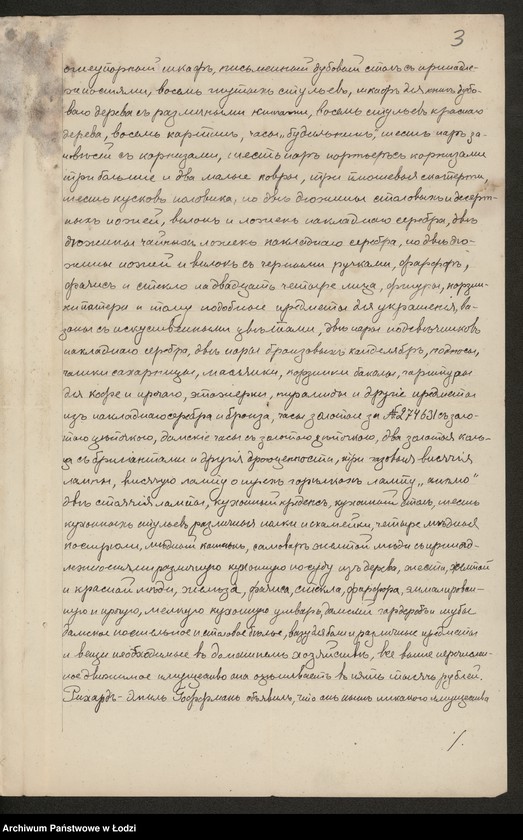 3
огнеупорный шкафъ, письменный дубовый столъ съ принадле-
жностями, восемь гнутыхъ стульевъ, шкафъ для книгъ дубо-
ваго дерева съ различными книгами, восемь стульевъ краснаго
дерева, восемь картинъ, часы „будильникъ", шесть паръ за-
навѣсей съ карнизами, шесть паръ портьеръ съ карнизами
три большіе и два малые ковры, три плюшевыя скатерти,
шесть кусковъ половика, по двѣ дюжины столовыхъ и десерт-
ныхъ ножей, вилокъ и ложекъ накладнаго серебра, двѣ
дюжины чайныхъ ложекъ накладнаго серебра, по двѣ дю-
жины ножей и вилокъ съ черными ручками, фарфоръ,
фаянсъ и стекло на двадцать четыре лица, фигуры, корзин-
ки патери и тому подобные предметы для украшенія, ва-
зоны съ искуственными цвѣтами, двѣ пары подсвѣчниковъ
накладнаго серебра, двѣ пары бронзовыхъ канделябръ, подносы,
чашки сахарницы, маслянки, корзинки бакалы, гарнитуры
для кофе и прочаго, этажерки, пирамиды и другіе предметы
изъ накладнаго серебра и бронза, часы золотые за № 274631 съ золо-
тою цѣпочкою, дамскіе часы съ золотою цѣпочкою, два золотыя коль-
ца съ брилiантами и другія драгоцѣнности, три газовыя висячія
лампы, висячую лампу о трехъ горѣлкахъ лампу „
двѣ стоячія лампы, кухонный креденсъ, кухонный столъ, шесть
кухонныхъ стульевъ, различныя полки и скамейки, четыре мѣдныя
кострюли, мѣдный самоваръ желтой мѣди съ принад-
лежностями различную кухонную посуду изъ дерева, жести, желтой
и красной мѣди, желѣза, фаянса, стекла, фарфора, эмалирован-
ную и прочую, мелкую кухонную утварь, дамскій гардеробъ и
дамское носильное и столовое бѣлье, и различные предметы
и вещи необходимые въ домашнемъ хозяйствѣ, все выше перечислен-
ное движимое имущество она оцѣниваетъ въ пять тысячъ рублей.
Рихардъ-Эмиль объявилъ, что онъ нынѣ никакого имущества
./.
Archiwum Państwowe w Łodzi